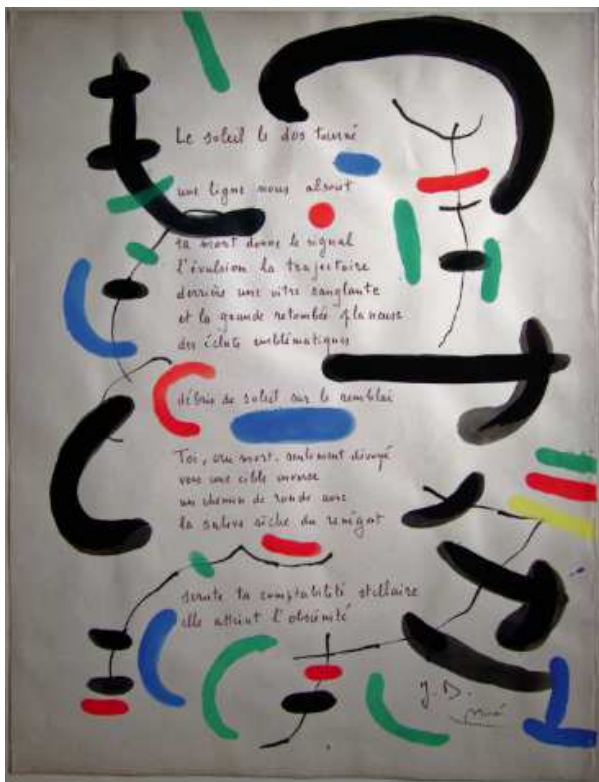 Le soleil le dos tourné
une ligne nous absout
ta mort donne le signal
l'évulsion la trajectoire
derrière une vitre sanglante
et la grande retombée
des éclats emblématiques
débris de soleil sur le remblai
Toi, cru mort, seulement dévoyé
vers une cible inverse
un chemin de ronde avec
la salive sèche du renégat
scrute ta comptabilité stellaire
elle atteint l'obscénité
J. D.
Miró